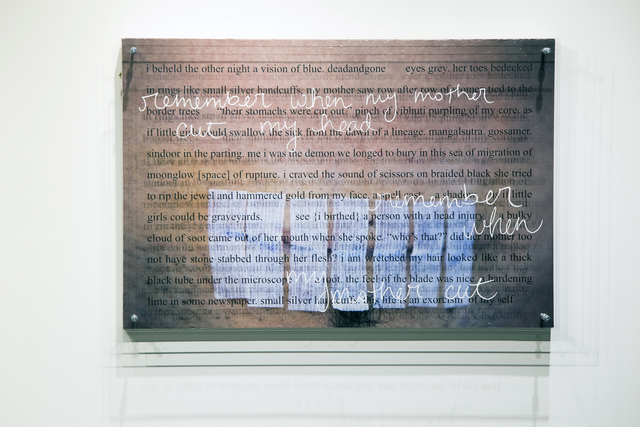 i beheld the other night a vision of blue. deadandgone eyes grey. her toes bedecked
in rings like small silver handcuffs. my mother saw row after row of them tied to the
"their stomachs were cut out." pinch of vibhuti purpling of my core, as
if little could swallow the sick from the dawn of a lineage. mangalsutra, gossamer.
sindoor in the parting. me i was the demon we longed to bury in this sea of migration of
moonglow [space] of rupture. i craved the sound of scissors on braided black she tried
to rip the jewel and hammered gold from my face. a spell little
girls could be graveyards. see {i birthed} a person with a head injury a bulky
cloud of soot came out of her mouth when she spoke. "who's that?" did her mother too
not have stone stabbed through her flesh? i am retched my hair looked like a thick
black tube under the microscope the feel of the blade was nice a hardening
lime in some newspaper. small silver is life an exorcism self
remember when my mother
cut my head
remember
when
my mother cut